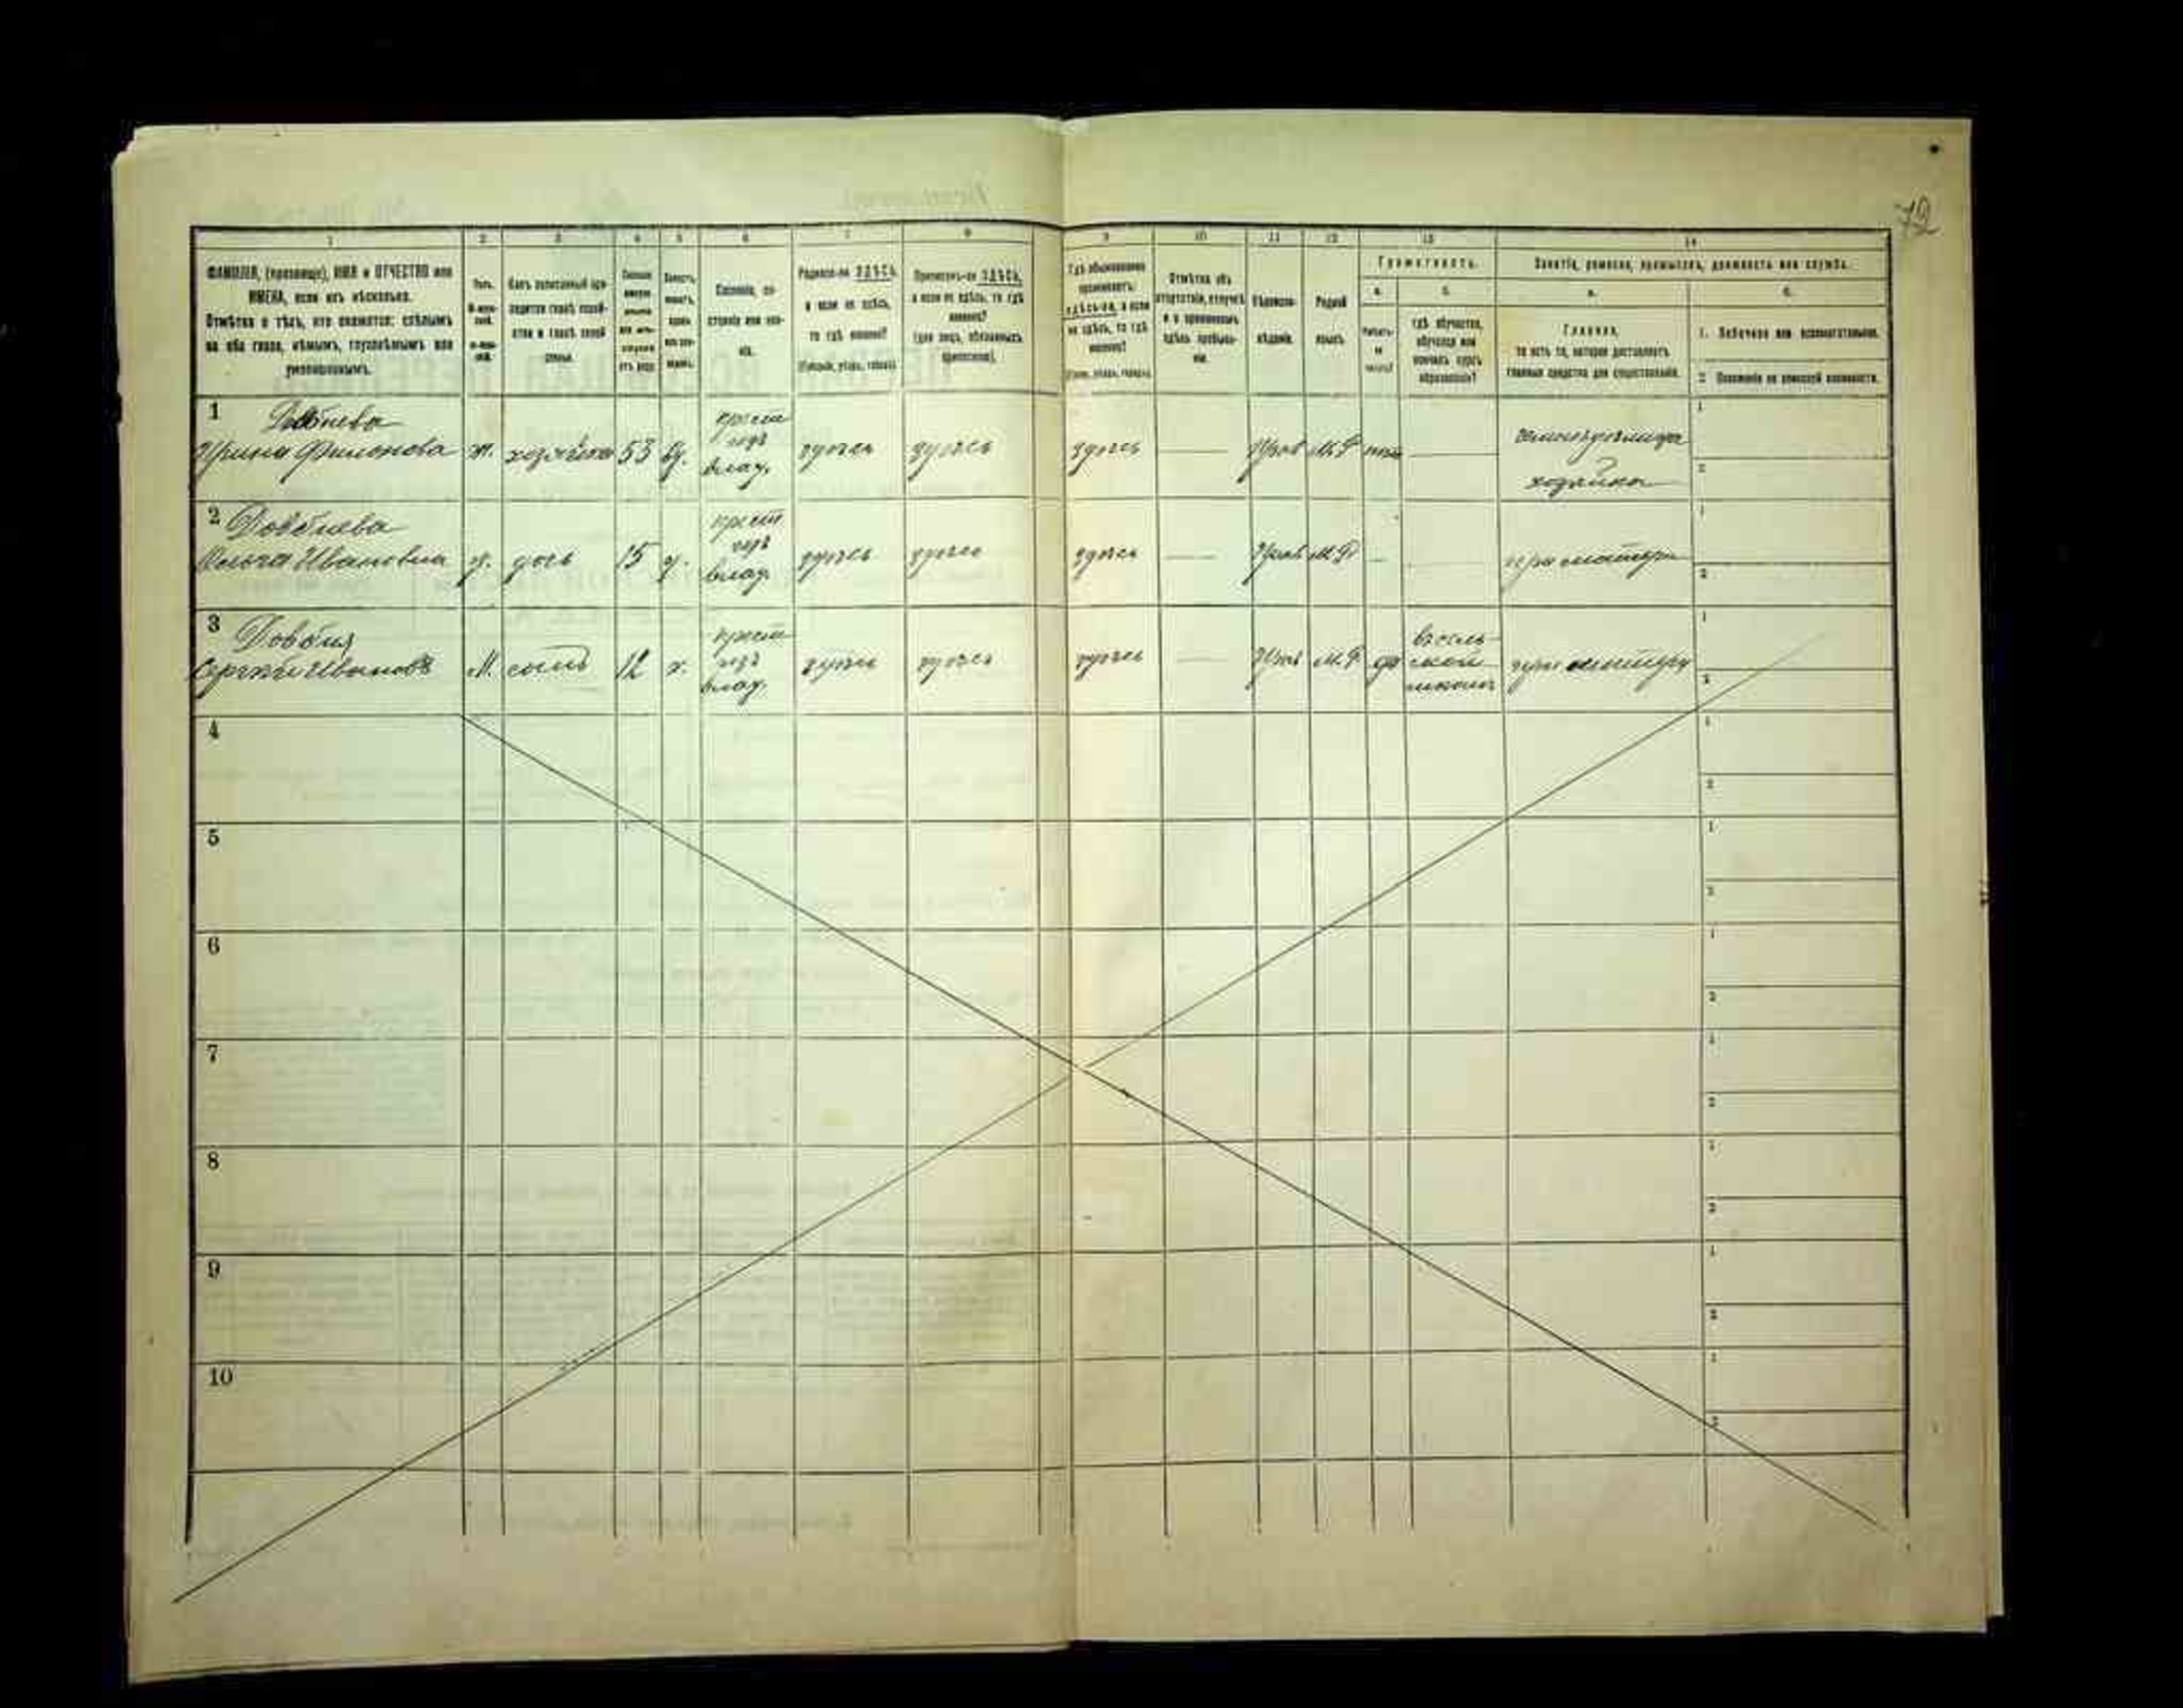 72
1 2 3 4 5 6 7 8 9 10 11 12 13 14
ФАМИЛІЯ, (прозвище), ИМЯ и ОТЧЕСТВО или
ИМЕНА, если ихъ нѣсколько.
Отмѣтка о тѣхъ, кто окажется: слѣпымъ
на оба глаза, нѣмымъ, глухонѣмымъ или
умалишеннымъ.
Полъ.
Какъ записанный при-
ходится главѣ хозяй-
ства и главѣ своей
семьи.
Сословіе, со-
стояніе или зва-
ніе.
Родился-ли ЗДѢСЬ,
а если не здѣсь,
то гдѣ именно?
(Губернія, уѣздъ, городъ).
Приписанъ-ли ЗДѢСЬ,
а если не здѣсь, то гдѣ
именно?
(для лицъ, обязанныхъ
припискою).
Гдѣ обыкновенно
проживаетъ:
здѣсь-ли, а если
не здѣсь, то гдѣ
именно?
(Губерн., уѣздъ, городъ).
Отмѣтка объ
отсутствіи, отлучкѣ
и о временномъ
здѣсь пребыва-
ніи.
Вѣроиспо-
вѣданіе.
Родной
языкъ.
Грамотность.
а.
б.
Гдѣ обучается,
обучался или
кончилъ курсъ
образованія?
Занятіе, ремесло, промыселъ, должность или служба.
а.
Главное,
то есть то, которое доставляетъ
главныя средства для существованія.
б.
1. Побочное или вспомогательное.
2. Положеніе по воинской повинности.
1
Ирина Филонова ж. хозяйка 53 вд. крест здѣсь здѣсь здѣсь Прав М.Р нѣтъ
влад.
хозяйка
1
2
2 Довбнева
Ольга Ивановна ж. дочь 15 д. крест здѣсь здѣсь здѣсь Прав М.Р при матери
влад.
1
2
3 Довбня
Сергѣй Ивановъ М. сынъ 12 х. крест здѣсь здѣсь здѣсь Прав М.Р да въ сель-
ской
школѣ
влад.
при матери
1
2
4
1
2
5
1
2
6
1
2
7
1
2
8
1
2
9
1
2
10
1
2